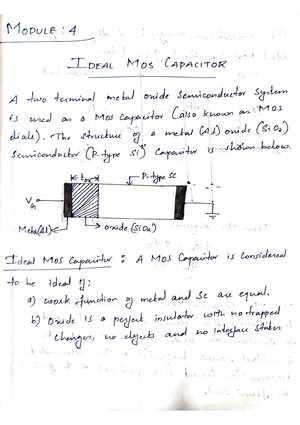 MODULE : 4
IDEAL MOS CAPACITOR
A two terminal metal oxide semiconductor system
is used as a MOS Capacitor (also known as MOS
diode). The structure of a metal (Al) oxide (SiO2)
Semiconductor (P-type Si) Capacitor is shown below.
tox
P-type SC
VG
Metal(Al)
oxide (SiO2)
Ideal MOS Capacitor : A MOS Capacitor is considered
to be ideal if:
a) work function of metal and Sc are equal.
b) Oxide is a perfect insulator with no trapped
charges, no defects and no interface states